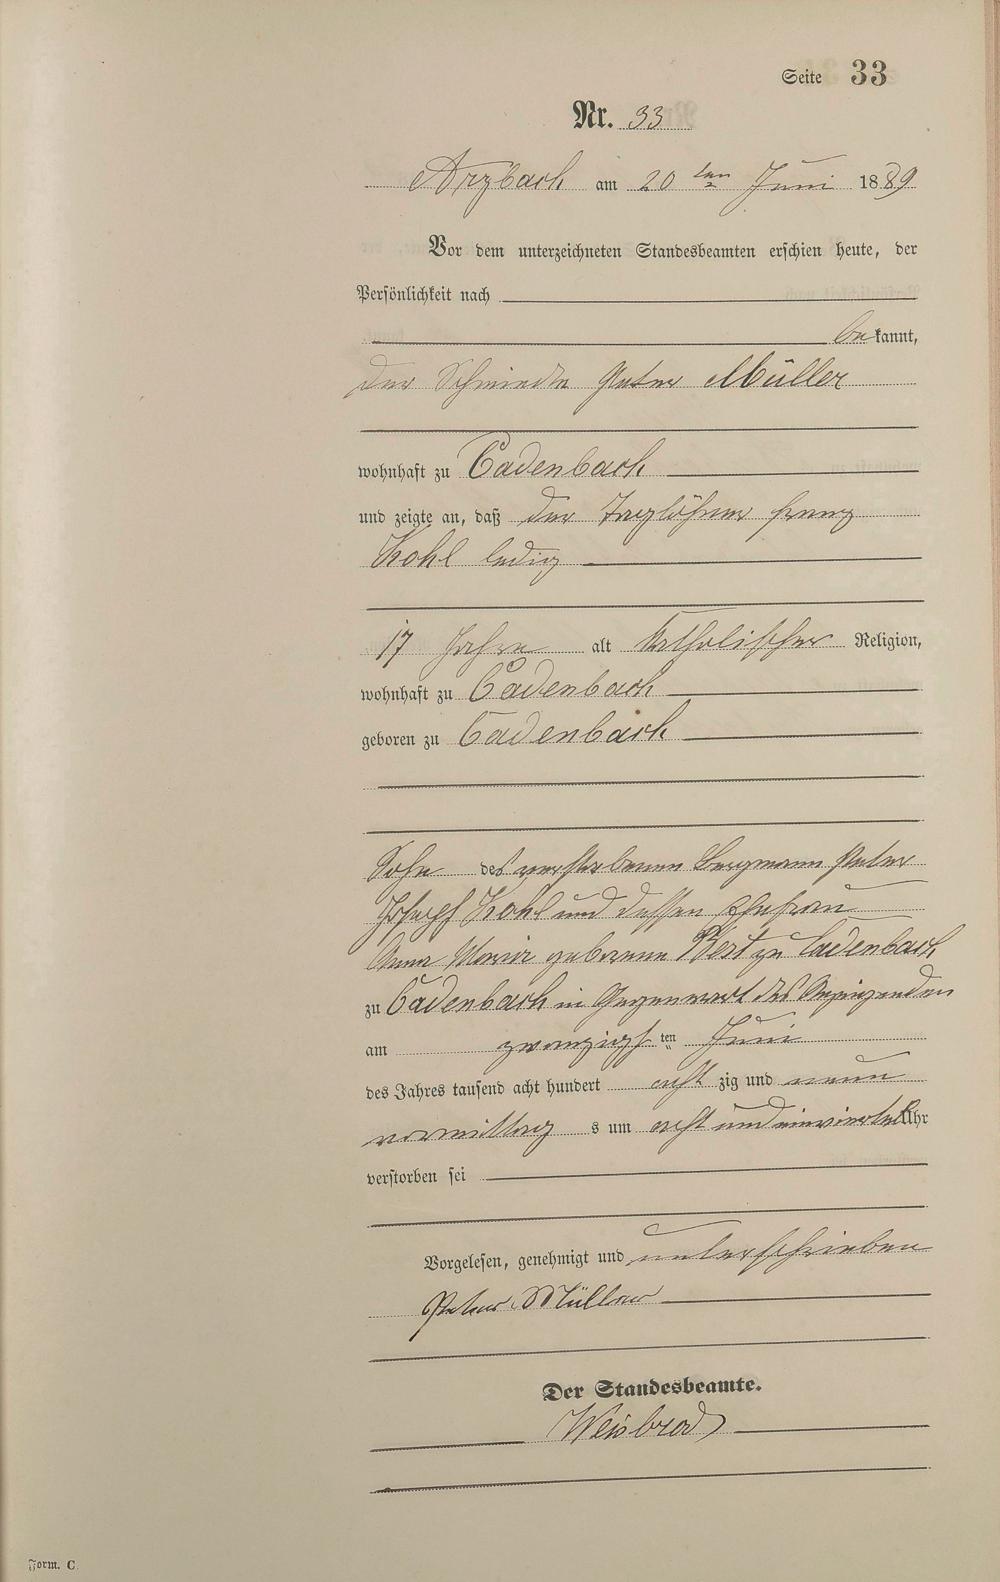 Seite 33
Nr. 33
Arzbach am 20 ten Juni 1889
Vor dem unterzeichneten Standesbeamten erschien heute, der
Persönlichkeit nach
bekannt,
der Schmiede Peter Müller
wohnhaft zu Cadenbach
und zeigte an, daß der Taglöhner Franz
Kohl ledig
17 Jahre alt katholischer Religion,
wohnhaft zu Cadenbach
geboren zu Cadenbach
Sohn des verstorbenen Bergmann Peter
Joseph Kohl und dessen Ehefrau
Anna Maria geborene Best zu Cadenbach
zu Cadenbach in Gegenwart des Anzeigenden
am zwanzigsten Juni
des Jahres tausend acht hundert acht zig und neun
vormittag s um acht und einviertel Uhr
verstorben sei
Vorgelesen, genehmigt und unterschrieben
Peter Müller
Der Standesbeamte.
Weisbrod
Form. C.